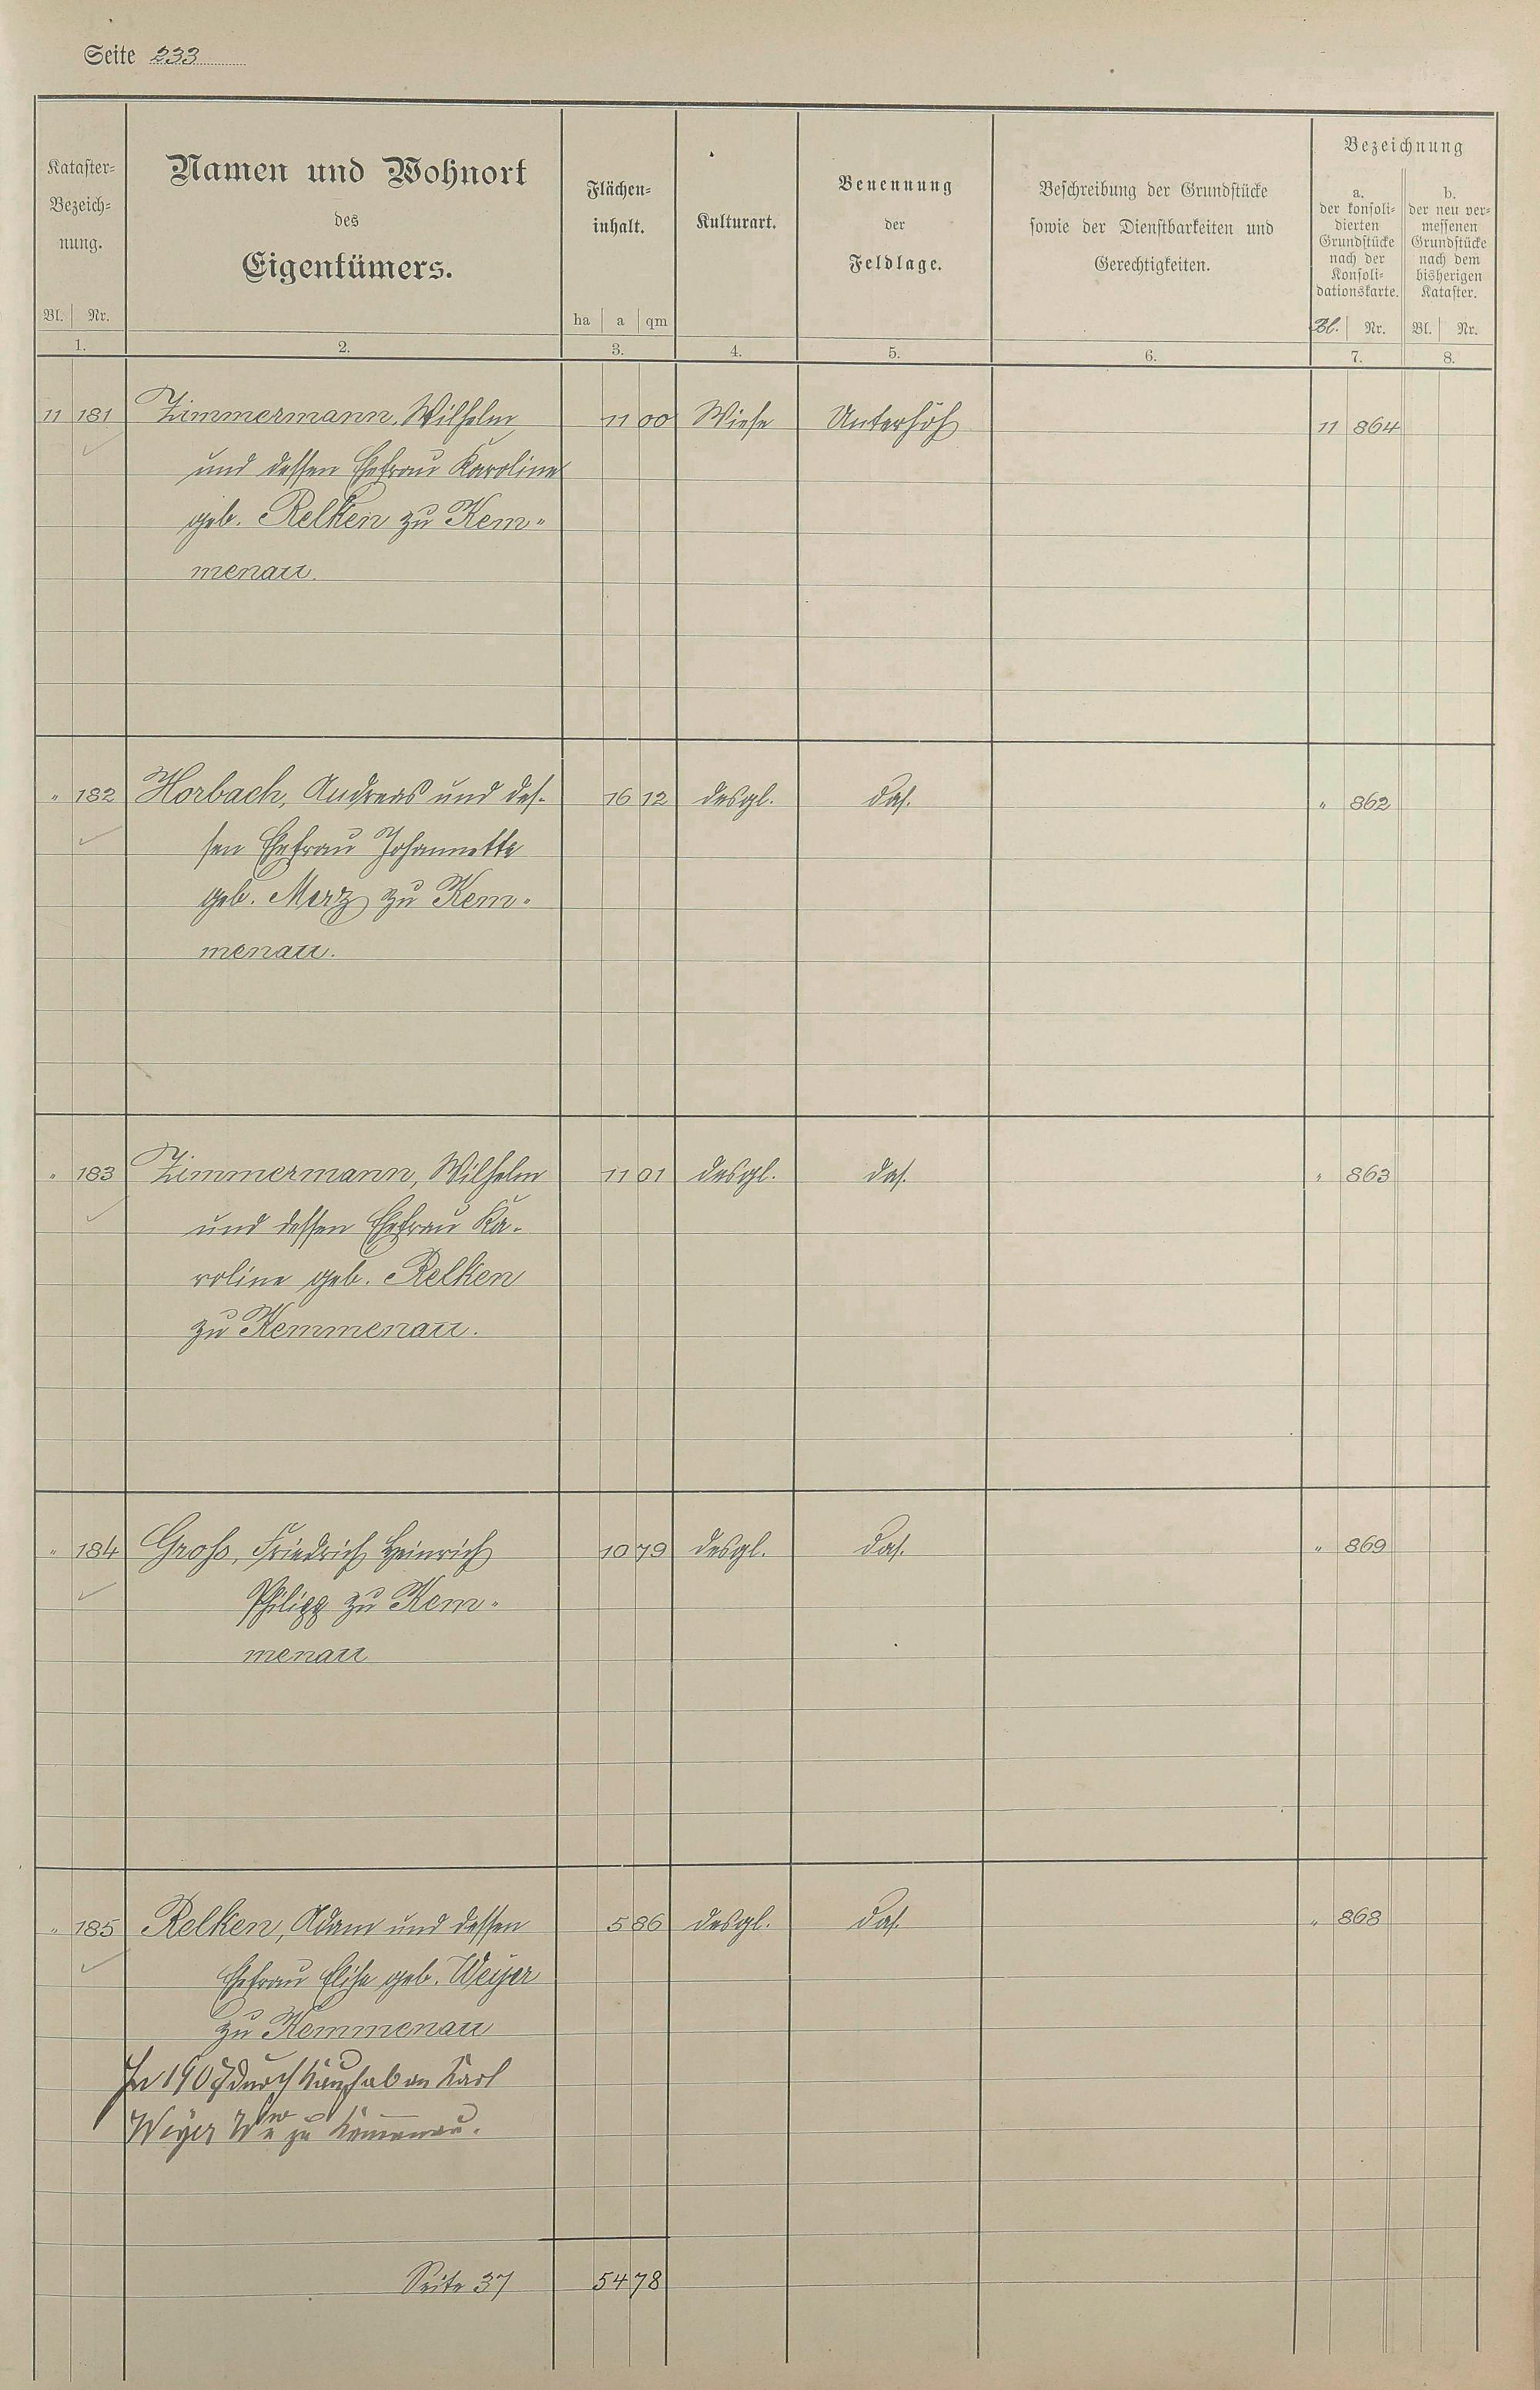 Seite 233
Kataster-
Bezeich-
nung.
Bl. Nr.
1.
Namen und Wohnort
des
Eigentümers.
2.
Flächen-
inhalt.
ha a qm
3.
Kulturart.
4.
Benennung
der
Feldlage.
5.
Beschreibung der Grundstücke
sowie der Dienstbarkeiten und
Gerechtigkeiten.
6.
Bezeichnung
a.
der konsoli-
dierten
Grundstücke
nach der
Konsoli-
dationskarte.
Bl. Nr.
7.
b.
der neu ver-
messenen
Grundstücke
nach dem
bisherigen
Kataster.
Bl. Nr.
8.
11 181 Zimmermann, Wilhelm 11 00 Wiese Unterhöh 11 864
und dessen Ehefrau Karoline
geb. Relken zu Kem-
menau.
" 182 Horbach, Andreas und des- 16 12 desgl. das. " 862
sen Ehefrau Johannette
geb. Merz zu Kem-
menau.
" 183 Zimmermann, Wilhelm 11 01 desgl. das. " 863
und dessen Ehefrau Ka-
roline geb. Relken
zu Kemmenau.
" 184 Groß, Friedrich Heinrich 10 79 desgl. das. " 869
Philipp zu Kem-
menau
" 185 Relken, Adam und dessen 5 86 desgl. das. " 868
Ehefrau Elise geb. Weyer
zu Kemmenau
In 1907 durch Kauf ab an Karl
Weyer Wwe zu Kemmenau.
Seite 37 54 78